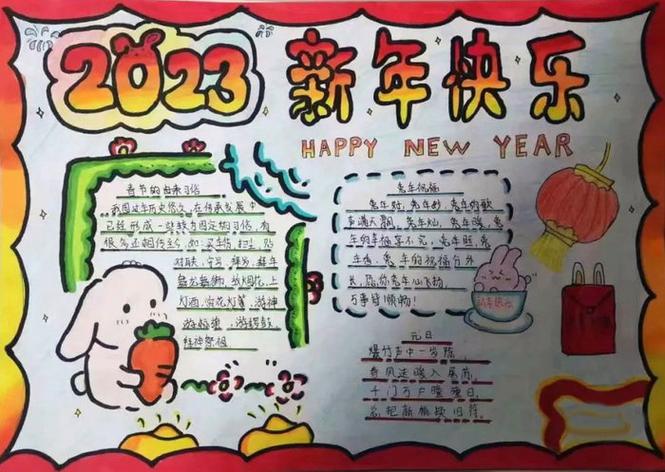 2023 新年快乐
HAPPY NEW YEAR
春节的由来习俗
我国过年历史悠久,在传承发展中
已经形成一些较为固定的习俗,有
很多还相传至今,如买年货、扫尘、贴
对联、守岁、拜岁、拜年
舞龙舞狮、放烟花、上
灯酒、赏花灯笼、游神
拜神祭祖
兔年祝福
兔年好,兔年妙,兔年的歌
声满天飘,兔年灿,兔年暖,兔
年的幸福享不完,兔年旺,兔
年的祝福分外
长,愿你兔年心飞扬
万事皆顺畅!
新年快乐
元日
爆竹声中一岁除,
春风送暖入屠苏,
千门万户曈曈日,
总把新桃换旧符。